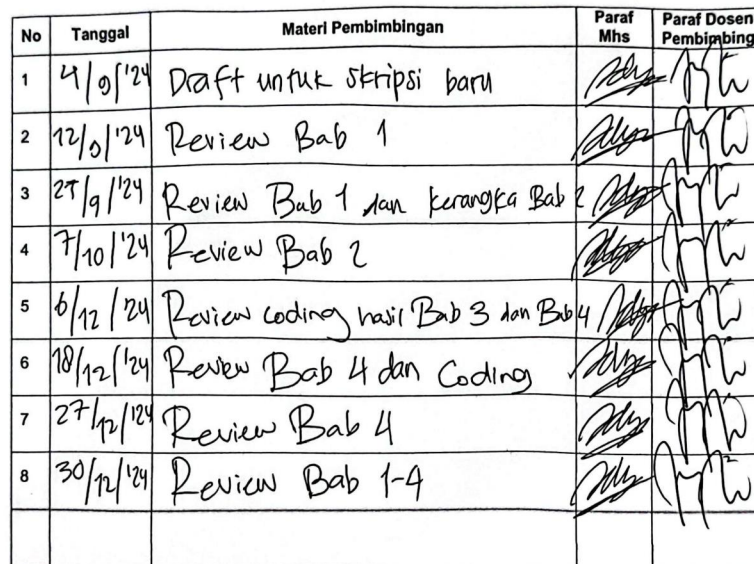 No Tanggal Materi Pembimbingan Paraf Mhs Paraf Dosen Pembimbing
1 4/9/'24 Draft untuk skripsi baru
2 12/9/'24 Review Bab 1
3 /9/'24 Review Bab 1 dan kerangka Bab 2
4 7/10/'24 Review Bab 2
5 6/12/'24 Review coding hasil Bab 3 dan Bab 4
6 18/12/'24 Review Bab 4 dan Coding
7 27/12/'24 Review Bab 4
8 30/12/'24 Review Bab 1-4